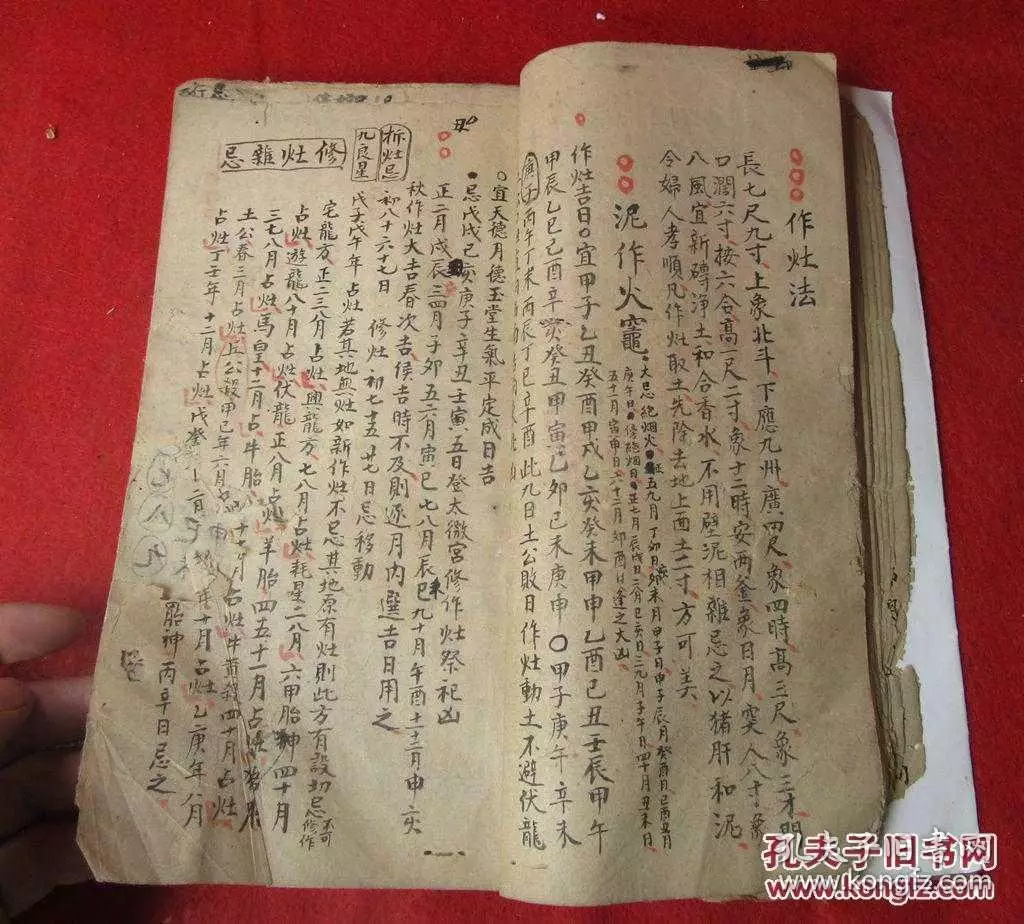 作灶法
長七尺九寸上象北斗下應九州廣四尺象四時高三尺象三才門
口濶六寸按六合高一尺二寸象十二時安兩釜象日月突入八寸象
八風宜新磚淨土和合香水不用壁泥相雜忌之以猪肝和泥
令婦人孝順凡作灶取土先除去地上面土二寸方可美
泥作火竈
大忌絶烟火
作灶吉日宜甲子乙丑癸酉甲戌乙亥癸未甲申乙酉己丑壬辰甲午
甲辰乙巳己酉辛亥癸丑甲寅乙卯己未庚申〇甲子庚午辛未
庚子丙午丁未丙辰丁巳辛酉此九日土公敗日作灶動土不避伏龍
宜天德月德玉堂生氣平定成日吉
忌戊戌己亥庚子辛丑壬寅五日登太微宮修作灶祭祀凶
正二月戌辰三四月子卯五六月寅巳七八月辰未九十月午酉十一十二月申亥
秋作灶大吉春次吉侯吉時不及則逐月内選吉日用之
拆灶忌
初八十六十七日 修灶初七十五廿七日忌移動
九良星
戊子戊午年占灶若其地無灶如新作灶不忌其地原有灶則此方有殺切忌不可修作
修灶雜忌
宅龍方正二三八月占灶興龍方七八月占灶耗星二八月六甲胎神四十月
占灶遊龍八十月占灶伏龍正八月占灶羊胎四五十一月占
三七八月占灶馬皇十二月占牛胎
土公春三月占灶土公殺甲己年六月
占灶丁壬年十二月占灶戊癸
十月占灶牛黄殺四十月占灶
十月占灶乙庚年八月
胎神丙辛日忌之
孔夫子旧书网
www.kongfz.com